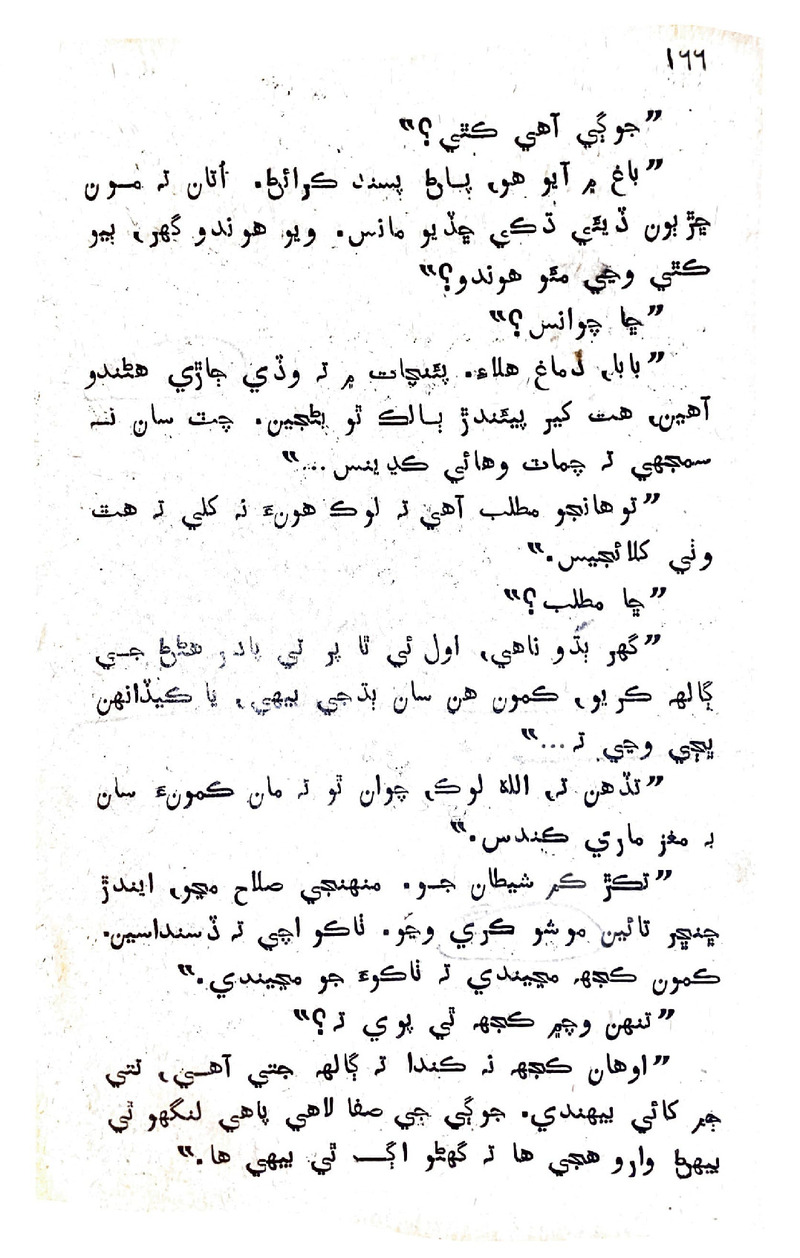 ١٦٦
”جوڳي آهي ڪٿي؟“
”باغ ۾ آيو هو، پاڻ پسند ڪرائڻ. اُتان ته مون
ڇڙٻون ڏيئي ڌڪي ڇڏيو مانس. ويو هوندو گهر، ٻيو
ڪٿي وڃي مئو هوندو؟“
”ڇا چوانس؟“
”بابا، دماغ هلاءِ. پئنچات ۾ ته وڏي ڄاڙي هڻندو
آهين، هت ڪير پيئندڙ ٻالڪ ٿو بڻجين. چٽ سان نه
سمجهي ته چمات وهائي ڪڍينس...“
”توهانجو مطلب آهي ته لوڪ هونءَ نه کلي ته هٿ
وٺي کلائجيس.“
”ڇا مطلب؟“
”گهر ٻڌو ناهي، اول ئي ٿا پر تي پادر هڻڻ جي
ڳالهه ڪريو، ڪمون هن سان ٻڌجي بيهي، يا ڪيڏانهن
ڀڄي وڃي ته...“
”تڏهن ته، الله لوڪ، چوان ٿو ته مان ڪمونءَ سان
به مغز ماري ڪندس.“
”تڪڙ ڪم شيطان جو. منهنجي صلاح مڃو، ايندڙ
ڇنڇر تائين موشو ڪري وڃو. ٺاڪو اچي ته ڏسنداسين.
ڪمون ڪجهه مڃيندي ته ٺاڪوءَ جو مڃيندي.“
”تنهن وچ۾ ڪجهه ٿي پوي ته؟“
”اوهان ڪجهه نه ڪندا ته ڳالهه جتي آهي، تتي
ڄم کائي بيهندي. جوڳي جي صفا لاهي پاهي لنگهو ٿي
بيهڻ وارو هجي ها ته گهڻو اڳ ٿي بيهي ها.“